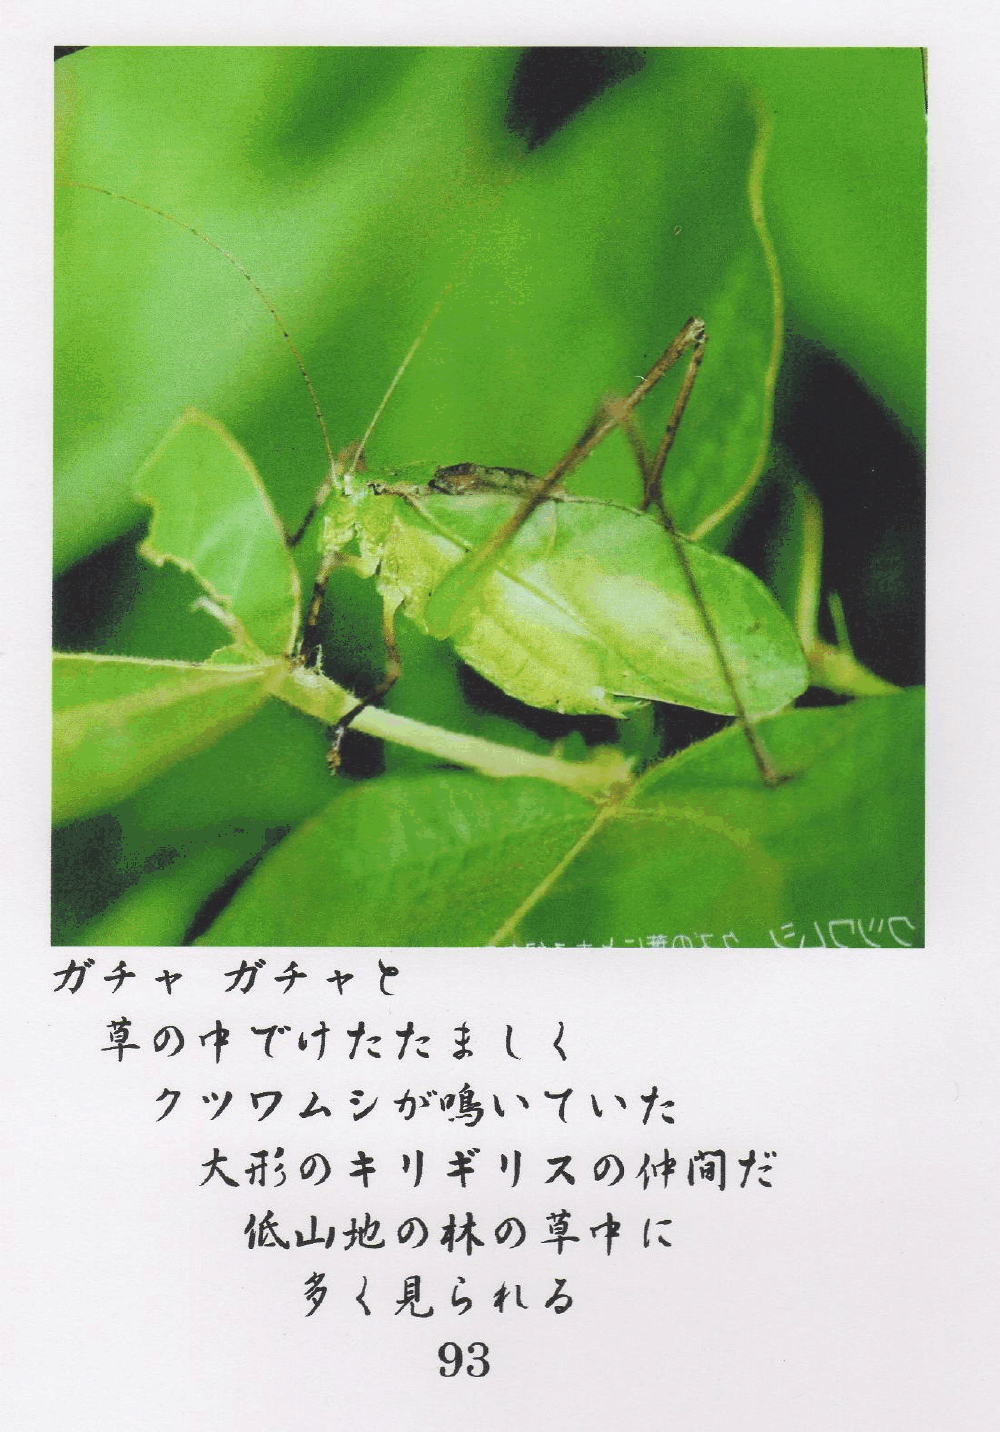 クツワムシ
ガチャ ガチャと
草の中でけたたましく
クツワムシが鳴いていた
大形のキリギリスの仲間だ
低山地の林の草中に
多く見られる
93